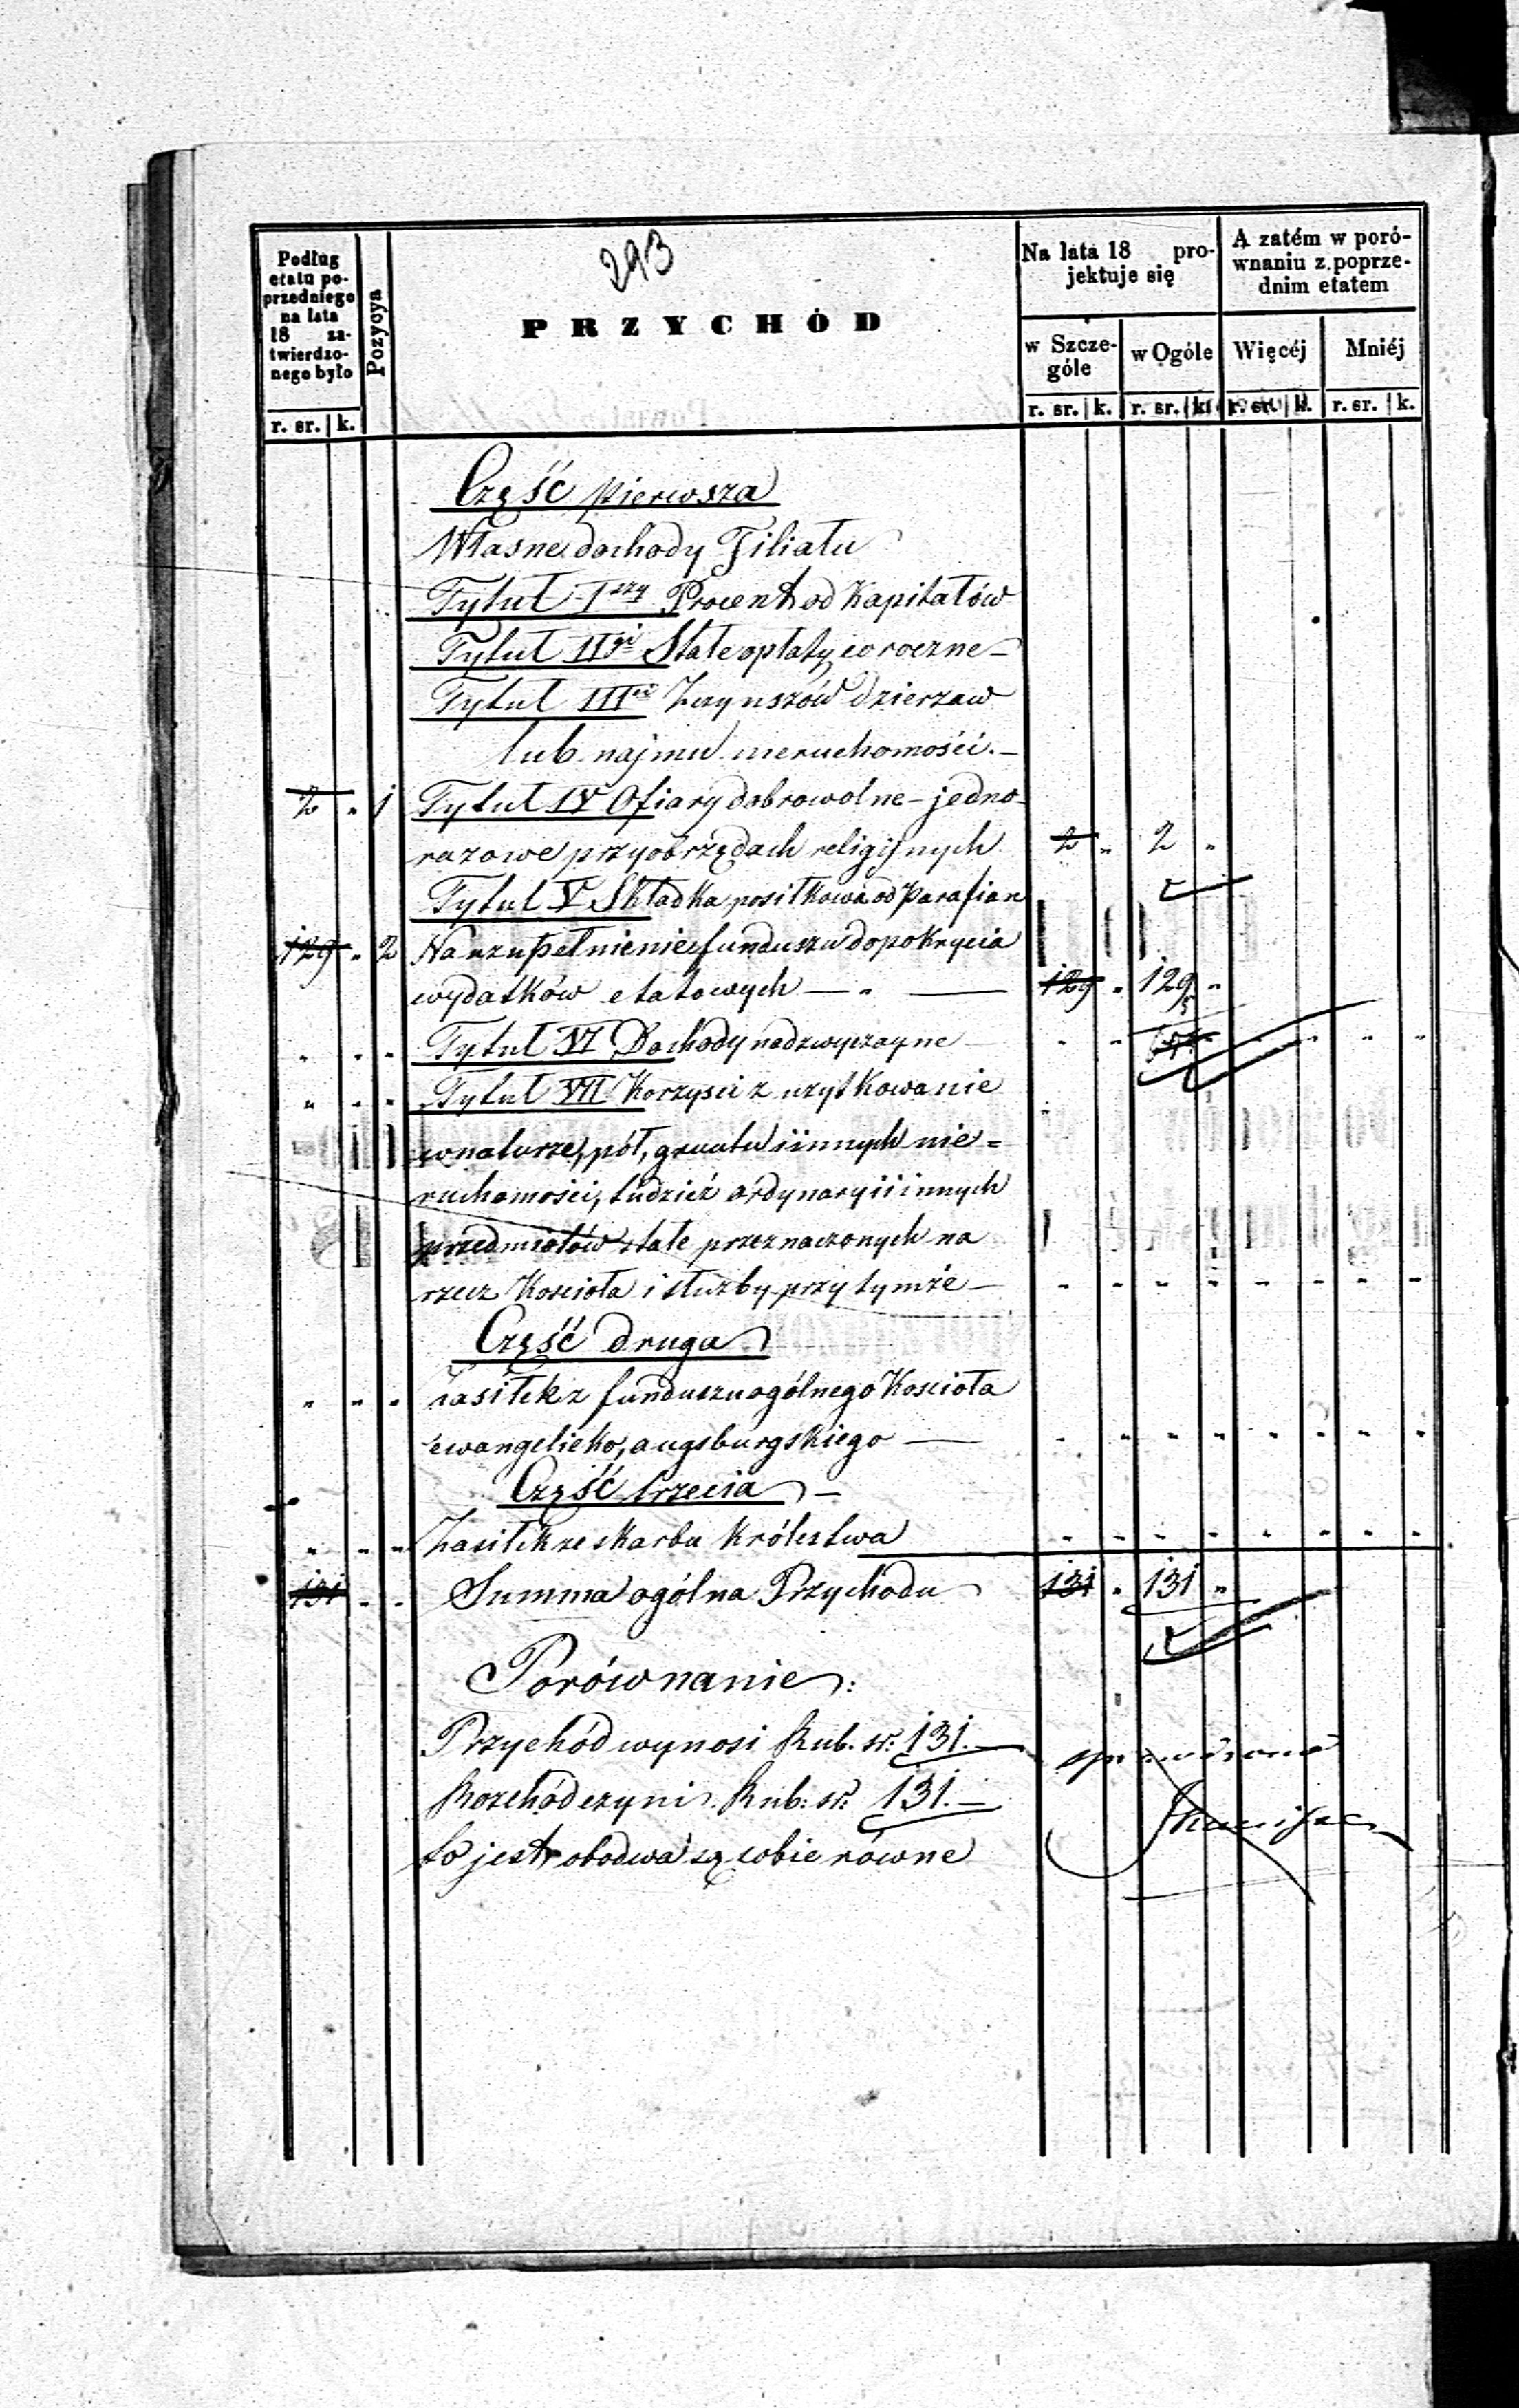 293
Podług etatu poprzedniego na lata 18 zatwierdzonego było
Pozycya
PRZYCHÓD
Na lata 18 projektuje się
A zatém w porównaniu z poprzednim etatem
w Szczególe
w Ogóle
Więcéj
Mniéj
r. sr. k.
r. sr. k. r. sr. k. r. sr. k. r. sr. k.
Część pierwsza
Własne dochody Filiału
Tytuł Iszy Procent od Kapitałów
Tytuł IIgi Stałe opłaty coroczne –
Tytuł IIIci Zczynszów dzierzaw
lub najmu nieruchomości. –
2 " 1 Tytuł IV Ofiary dobrowolne – jedno-
razowe przy obrzędach religijnych 2 " 2 "
Tytuł V Składka posiłkowa od Parafian
129 " 2 Na uzupełnienie funduszu do pokrycia
wydatków etatowych — " — 129 " 129 "
" " " Tytuł VI Dochody nadzwyczayne – " " " " " "
" " " Tytuł VII Korzysci z uzytkowanie
w naturze, pól, gruntu i innych nie=
ruchomości, tudzież ordynaryi i innych
przedmiotów stale przeznaczonych na
rzecz Kościoła i służby przy tymże – " " " " " " " "
Część druga
" " " Zasiłek z funduszu ogólnego Kościoła
ewangelicko, augsburgskiego — " " " " " " " "
Część trzecia –
" " " Zasiłek ze skarbu Królestwa " " " " " " " "
131 " " Summa ogólna Przychodu 131 " 131 "
Porównanie:
Przychód wynosi Rub. sr: 131. –
Rozchód czyni Rub: sr: 131. –
to jest obodwa są sobie równe